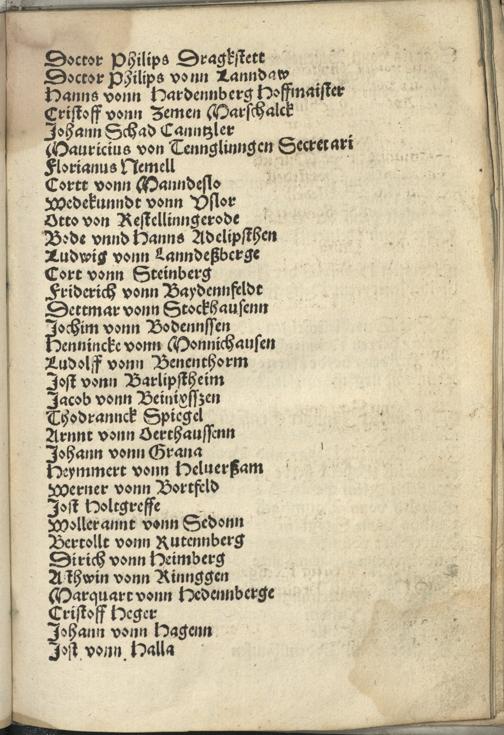 Doctor Philips Dragkstett
Doctor Philips vonn Lanndaw
Hanns vonn Hardennberg Hoffmaister
Cristoff vonn Zemen Marschalck
Johann Schad Canntzler
Mauricius von Tennglinngen Secretari
Florianus Nemell
Cortt vonn Manndeslo
Wedekunndt vonn Vslor
Otto von Restellinngerode
Bode vnnd Hanns Adelipsthen
Ludwig vonn Lanndeßberge
Cort vonn Steinberg
Friderich vonn Baydennfeldt
Dettmar vonn Stockhausenn
Jochim vonn Bodennssen
Hennincke vonn Monnichausen
Ludolff vonn Benenthorm
Jost vonn Barlipstheim
Jacob vonn
Thodrannck Spiegel
Arnnt vonn Oerthaussenn
Johann vonn Grana
Heymmert vonn Heluerßam
Werner vonn Bortfeld
Jost Holtgreffe
Wollerannt vonn Sedonn
Bertollt vonn Rutennberg
Dirich vonn Heimberg
Aschwin vonn Rinnggen
Marquart vonn Hedennberge
Cristoff Heger
Johann vonn Hagenn
Jost vonn Halla